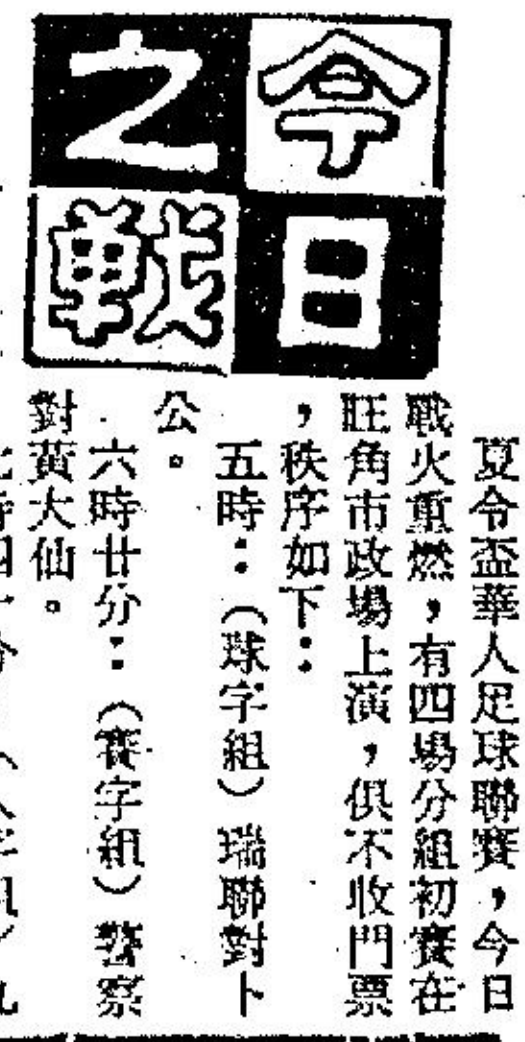 今日之戰
夏令盃華人足球聯賽，今日
戰火重燃，有四場分組初賽在
旺角市政場上演，俱不收門票
，秩序如下：
五時：（球字組）瑞聯對卜
公。
六時廿分：（賽字組）警察
對黃大仙。